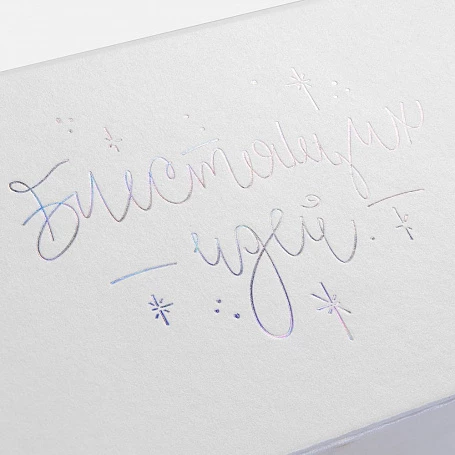 Блестящих
идей.